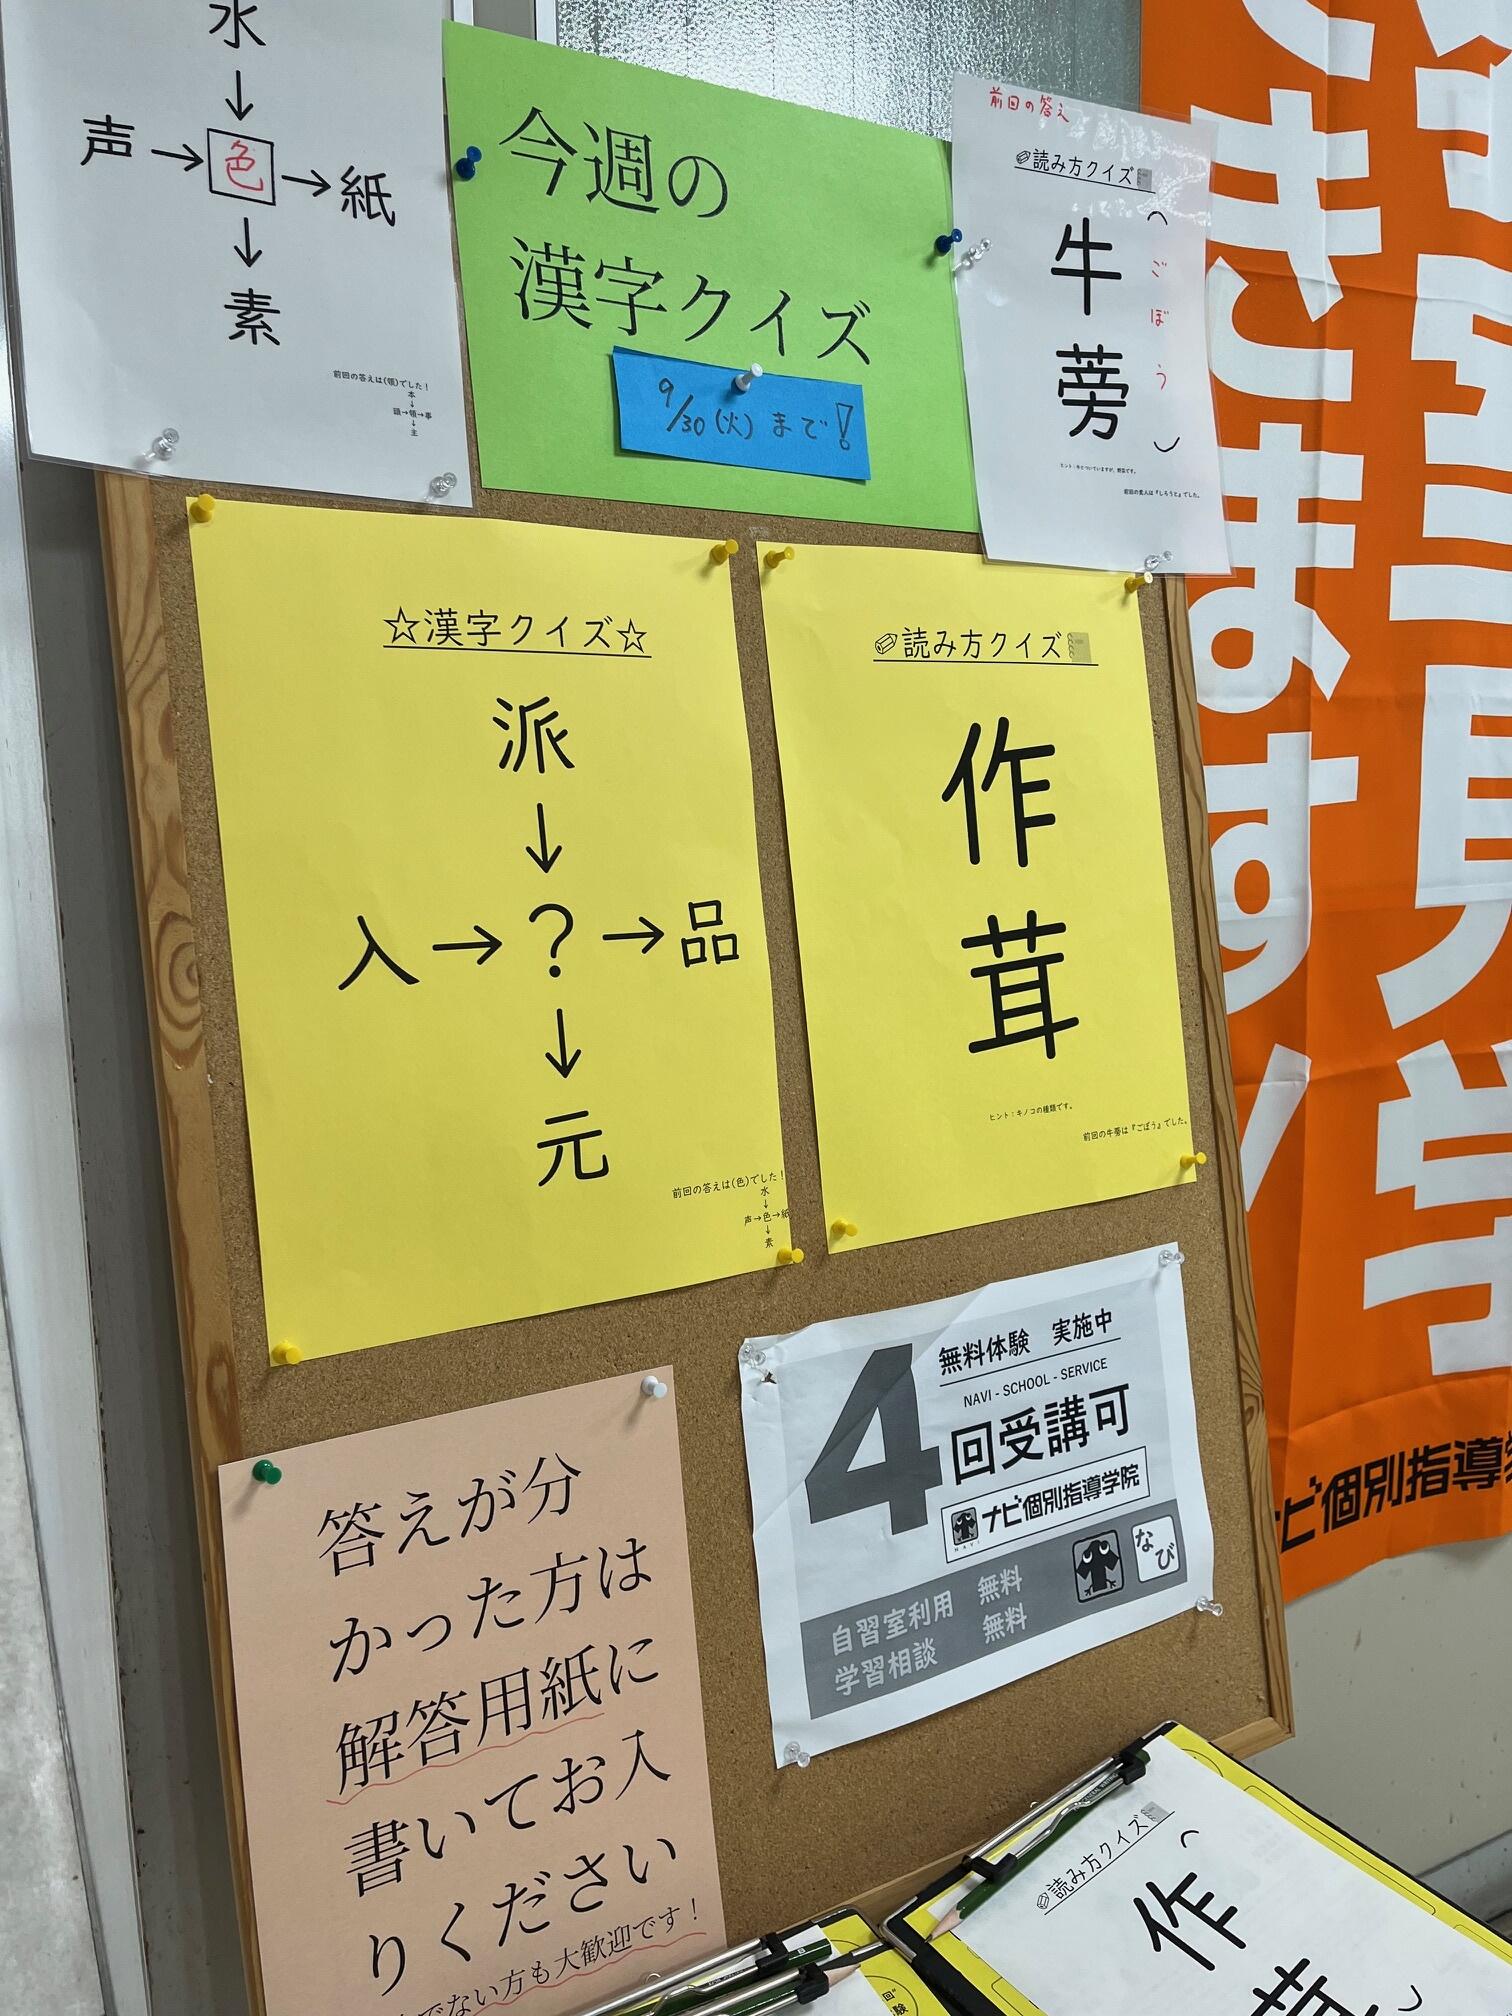 水
↓
声→色→紙
↓
素
前回の答えは(領)でした！
本
↓
頭→領→事
↓
主
今週の
漢字クイズ
9/30(火)まで！
前回の答え
読み方クイズ
牛蒡
(ごぼう)
ヒント：牛とついていますが、野菜です。
前回の素人は『しろうと』でした。
☆漢字クイズ☆
派
↓
入→？→品
↓
元
前回の答えは(色)でした！
水
↓
声→色→紙
↓
素
読み方クイズ
作茸
ヒント：キノコの種類です。
前回の牛蒡は『ごぼう』でした。
答えが分
かった方は
解答用紙に
書いてお入
りください
でない方も大歓迎です！
無料体験 実施中
NAVI - SCHOOL - SERVICE
4回受講可
ナビ個別指導学院
NAVI
自習室利用 無料
学習相談 無料
なび
きます！
ビ個別指導学
読み方クイズ
作茸